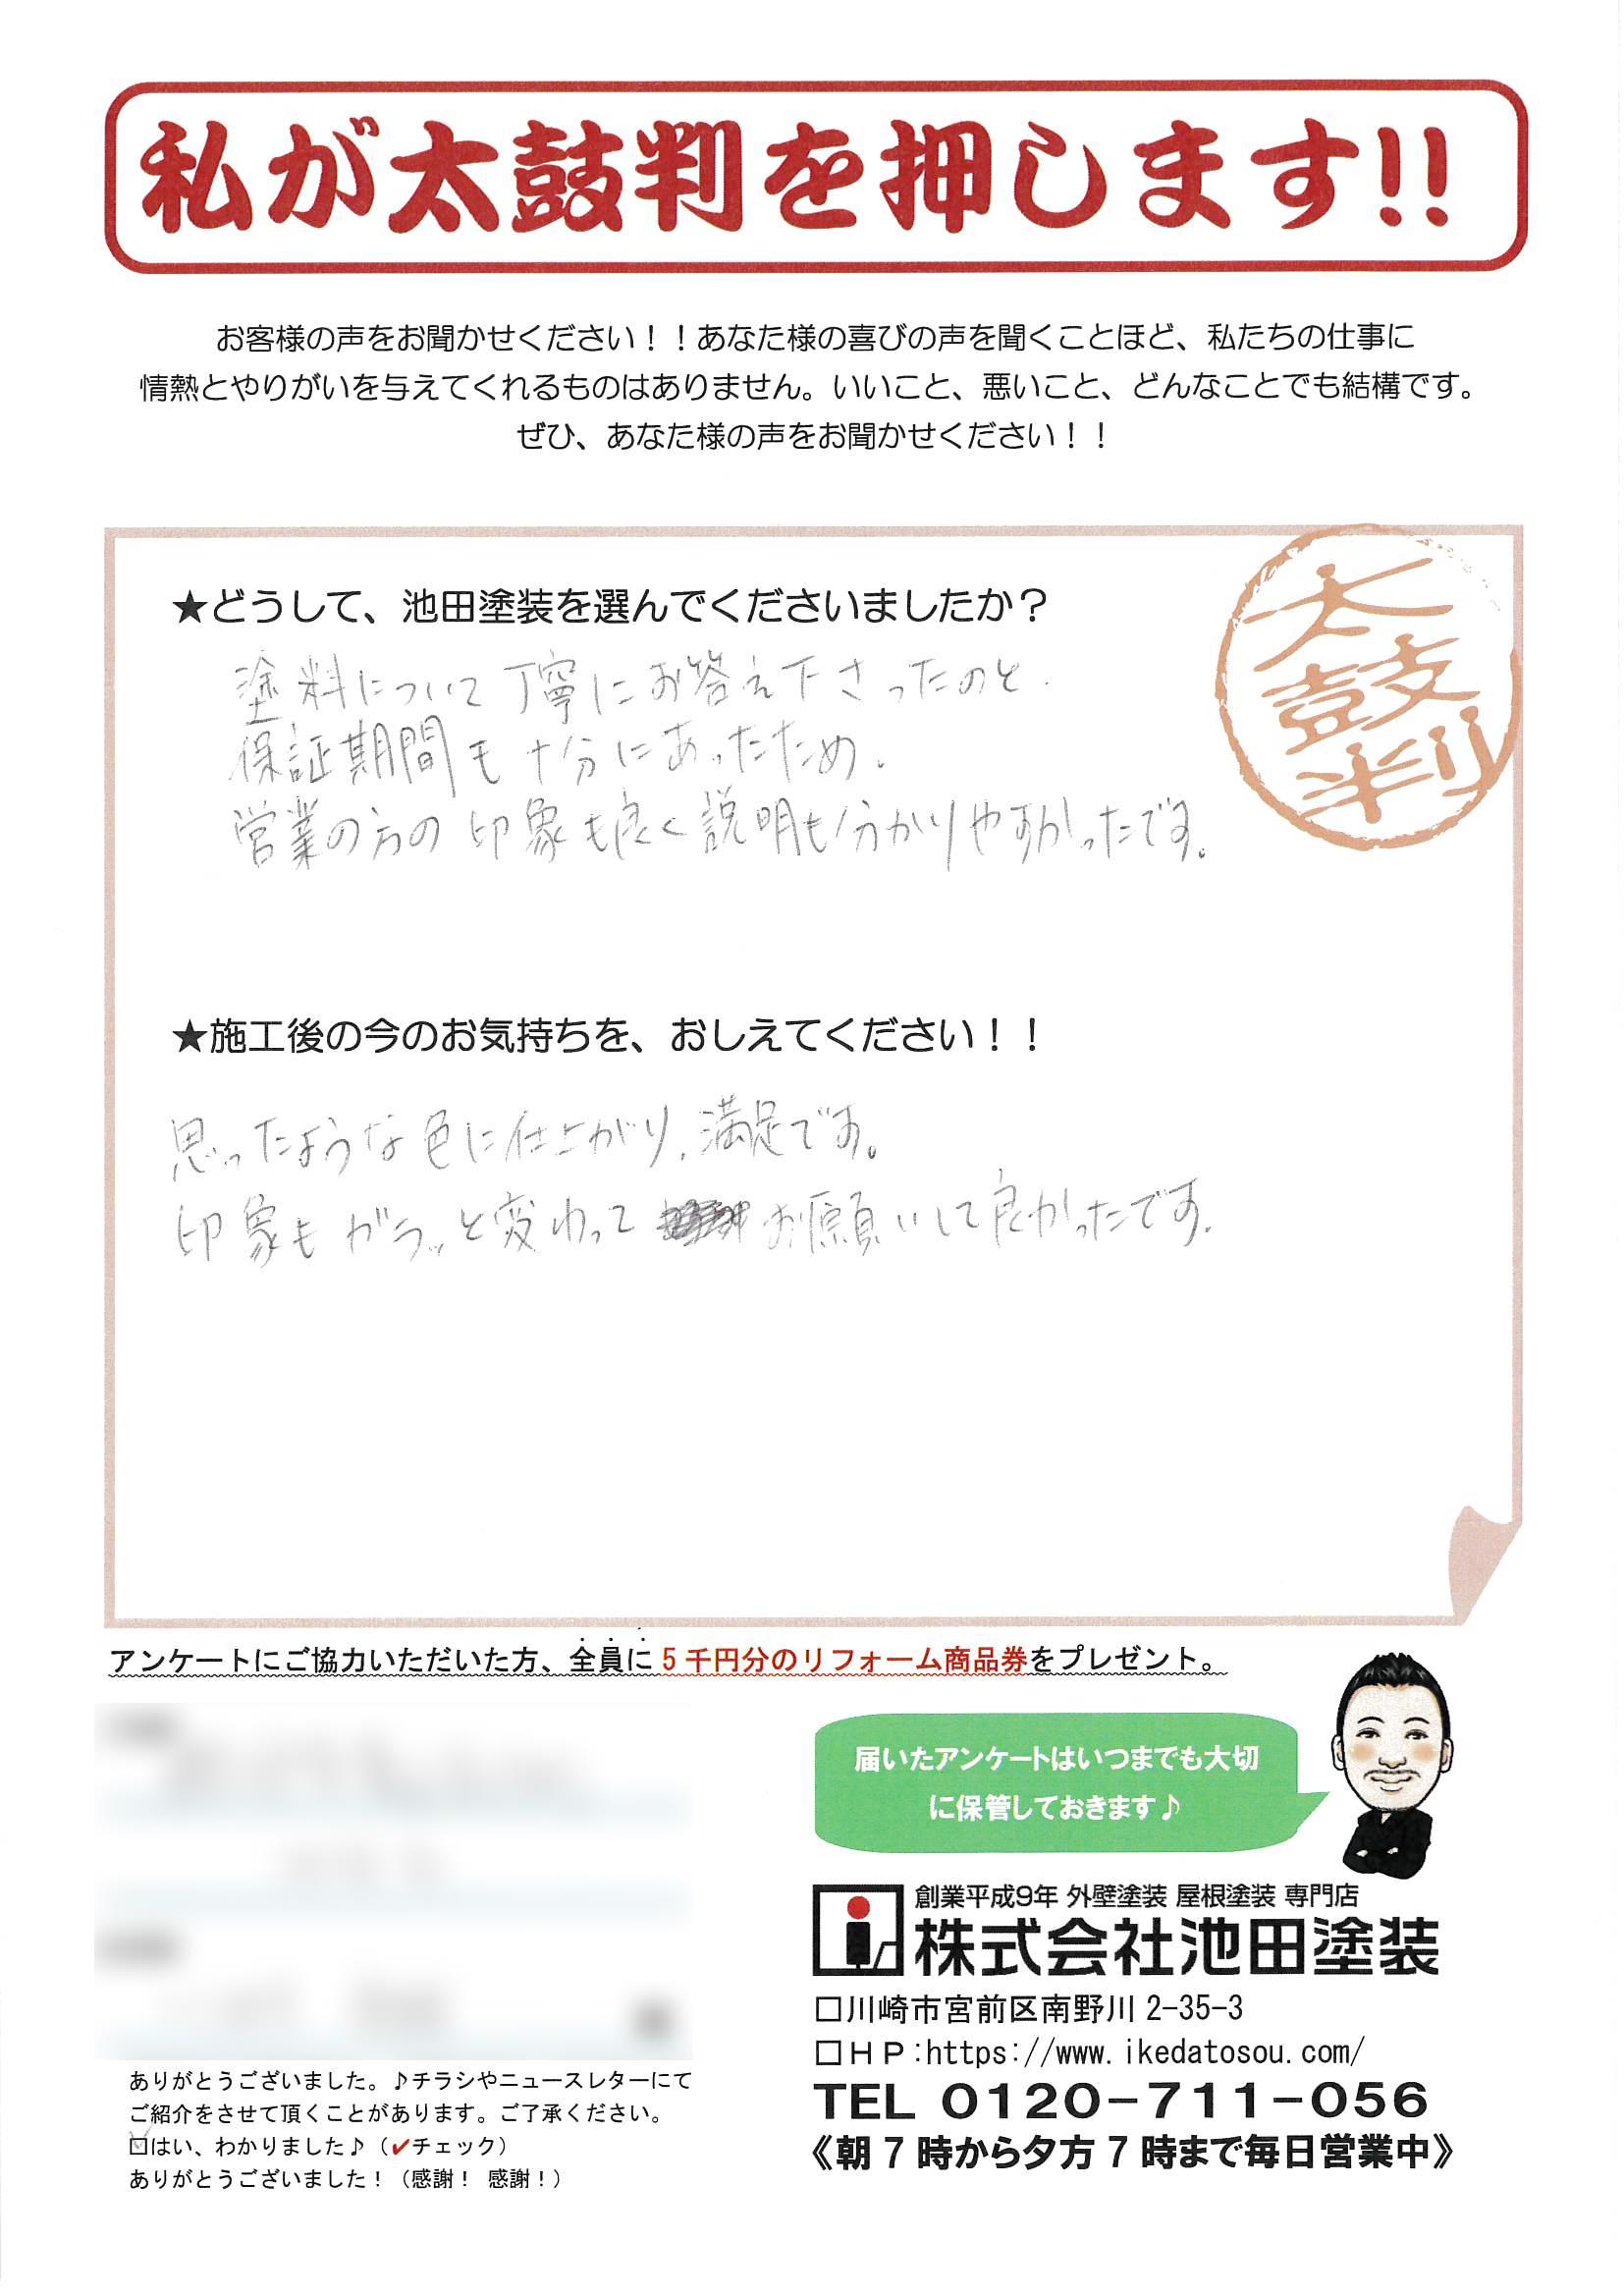 私が太鼓判を押します!!
お客様の声をお聞かせください！！あなた様の喜びの声を聞くことほど、私たちの仕事に
情熱とやりがいを与えてくれるものはありません。いいこと、悪いこと、どんなことでも結構です。
ぜひ、あなた様の声をお聞かせください！！
太鼓判
★どうして、池田塗装を選んでくださいましたか？
塗料について丁寧にお答え下さったのと、
保証期間も十分にあったため。
営業の方の印象も良く説明も分かりやすかったです。
★施工後の今のお気持ちを、おしえてください！！
思ったような色に仕上がり、満足です。
印象もガラッと変わって お願いして良かったです。
アンケートにご協力いただいた方、全員に5千円分のリフォーム商品券をプレゼント。
届いたアンケートはいつまでも大切
に保管しておきます♪
創業平成9年 外壁塗装 屋根塗装 専門店
株式会社池田塗装
□川崎市宮前区南野川2-35-3
□ＨＰ:https://www.ikedatosou.com/
TEL 0120-711-056
《朝7時から夕方7時まで毎日営業中》
ありがとうございました。♪チラシやニュースレターにて
ご紹介をさせて頂くことがあります。ご了承ください。
☑はい、わかりました♪（✔チェック）
ありがとうございました！（感謝！ 感謝！）